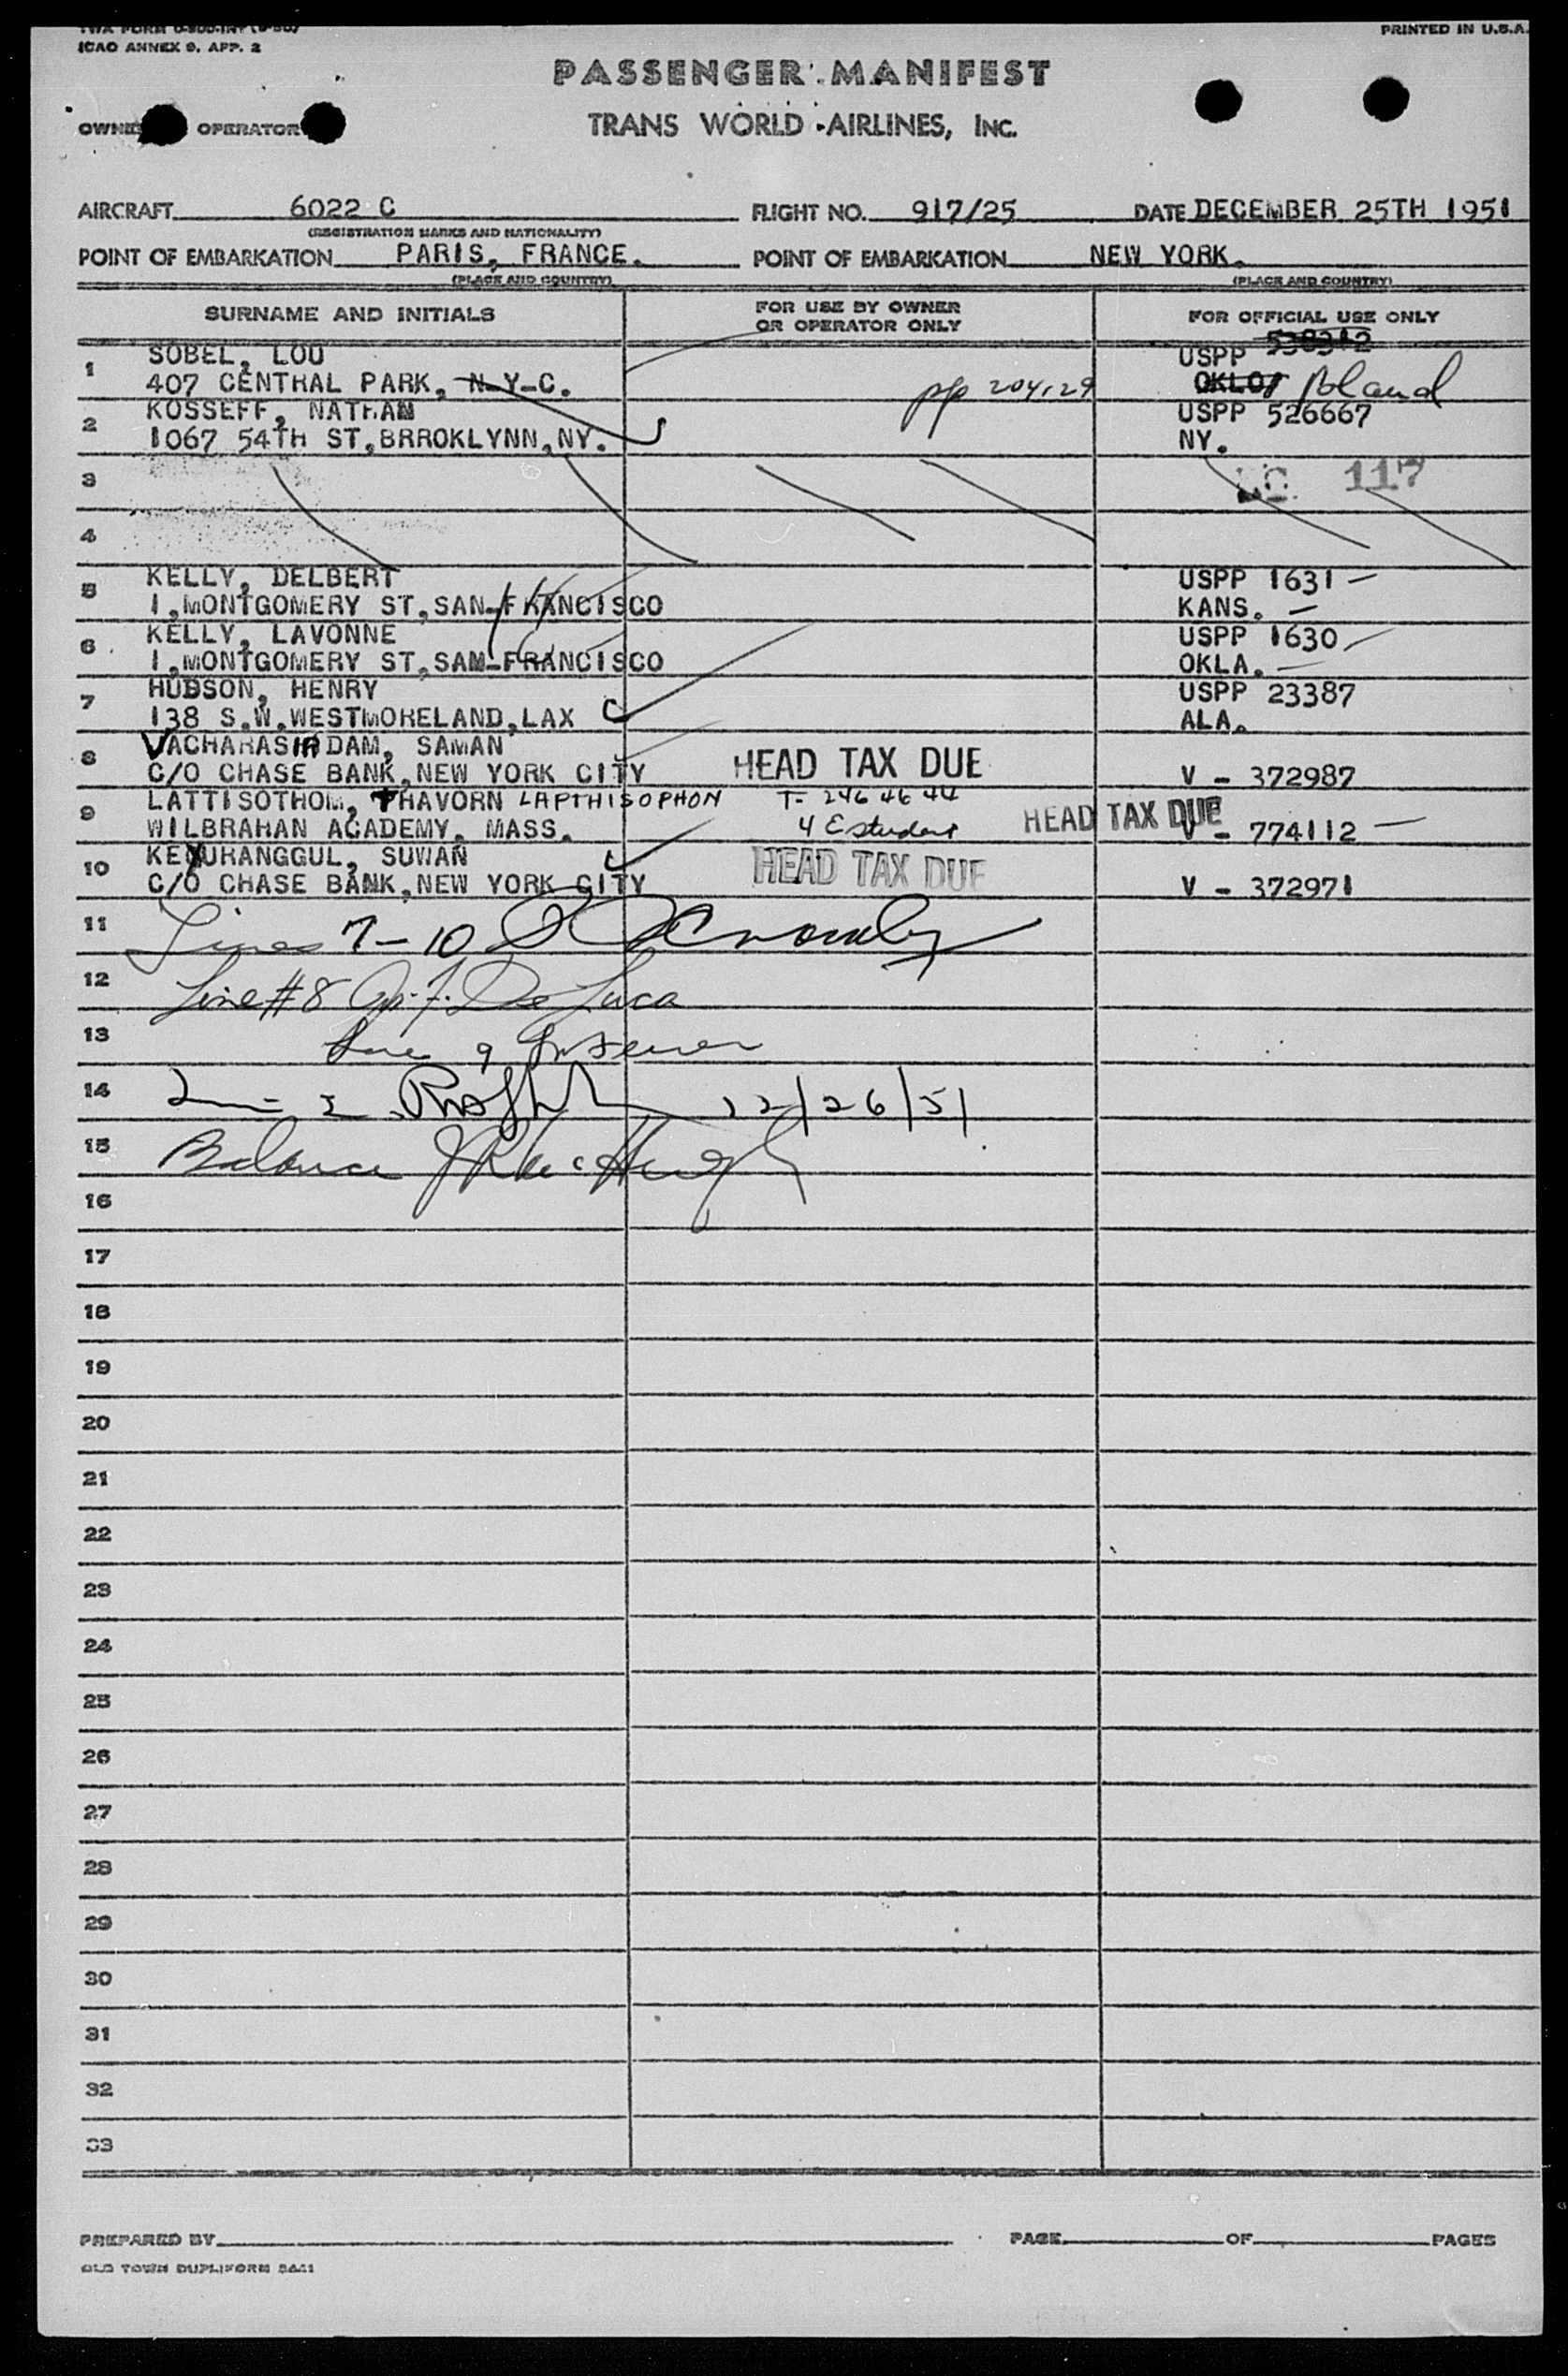 TWA FORM
ICAO ANNEX 9, APP. 2
PRINTED IN U.S.A.
PASSENGER MANIFEST
OPERATOR
TRANS WORLD AIRLINES, INC.
AIRCRAFT 6022 C FLIGHT NO. 917/25 DATE DECEMBER 25TH 1951
(REGISTRATION MARKS AND NATIONALITY)
POINT OF EMBARKATION PARIS, FRANCE. POINT OF EMBARKATION NEW YORK.
(PLACE AND COUNTRY) (PLACE AND COUNTRY)
SURNAME AND INITIALS FOR USE BY OWNER OR OPERATOR ONLY FOR OFFICIAL USE ONLY
1 SOBEL, LOU USPP 538312
407 CENTRAL PARK, N-Y-C. pp 204129 Poland
2 KOSSEFF, NATHAN USPP 526667
1067 54TH ST,BRROKLYNN,NY. NY.
3 117
4
5 KELLY, DELBERT USPP 1631 –
1,MONTGOMERY ST,SAN-FRANCISCO KANS. –
6 KELLY, LAVONNE USPP 1630
1,MONTGOMERY ST,SAN-FRANCISCO OKLA. –
7 HUDSON, HENRY USPP 23387
138 S.W.WESTMORELAND,LAX C ALA.
8 VACHARASINDAM, SAMAN HEAD TAX DUE
C/O CHASE BANK,NEW YORK CITY V - 372987
9 LATTISOTHOM, THAVORN LAPTHISOPHON T- 2464644 HEAD TAX DUE
WILBRAHAN ACADEMY, MASS. 4 E student V - 774112 –
10 KEYURANGGUL, SUWAN HEAD TAX DUE
C/O CHASE BANK,NEW YORK CITY V - 372971
11 Lines 7-10
12 Line #8 De Luca
13 Line 9
14 12/26/51
15 Balance
16
17
18
19
20
21
22
23
24
25
26
27
28
29
30
31
32
33
PREPARED BY PAGE OF PAGES
OLD TOWN DUPLIFORM